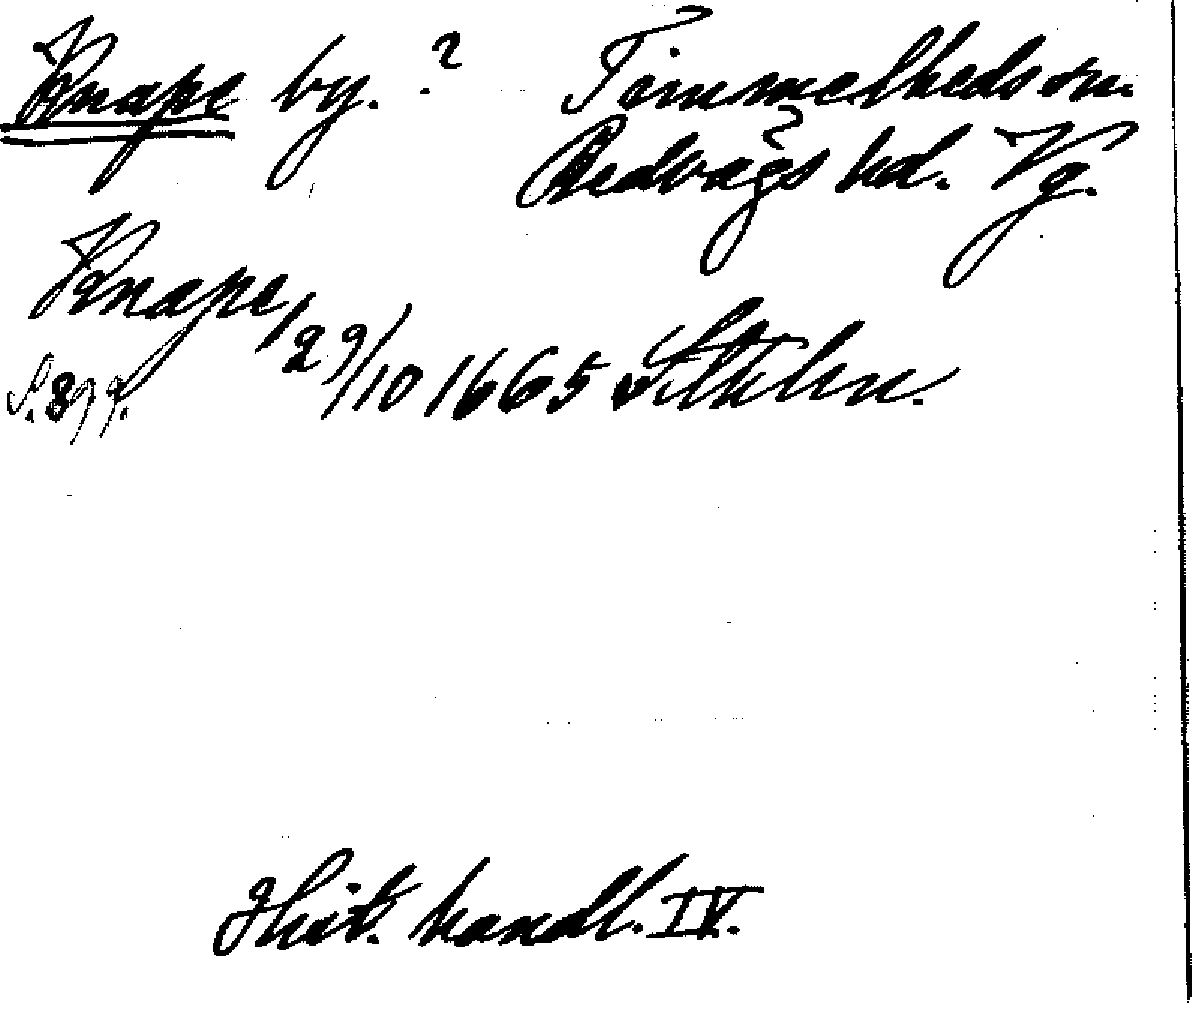 Knape by. ? Timmelheds sn.
Redvägs hd. Vg.
Knape, 29/10 1665 Sthlm.
S. 379.
Hist. handl. IV.